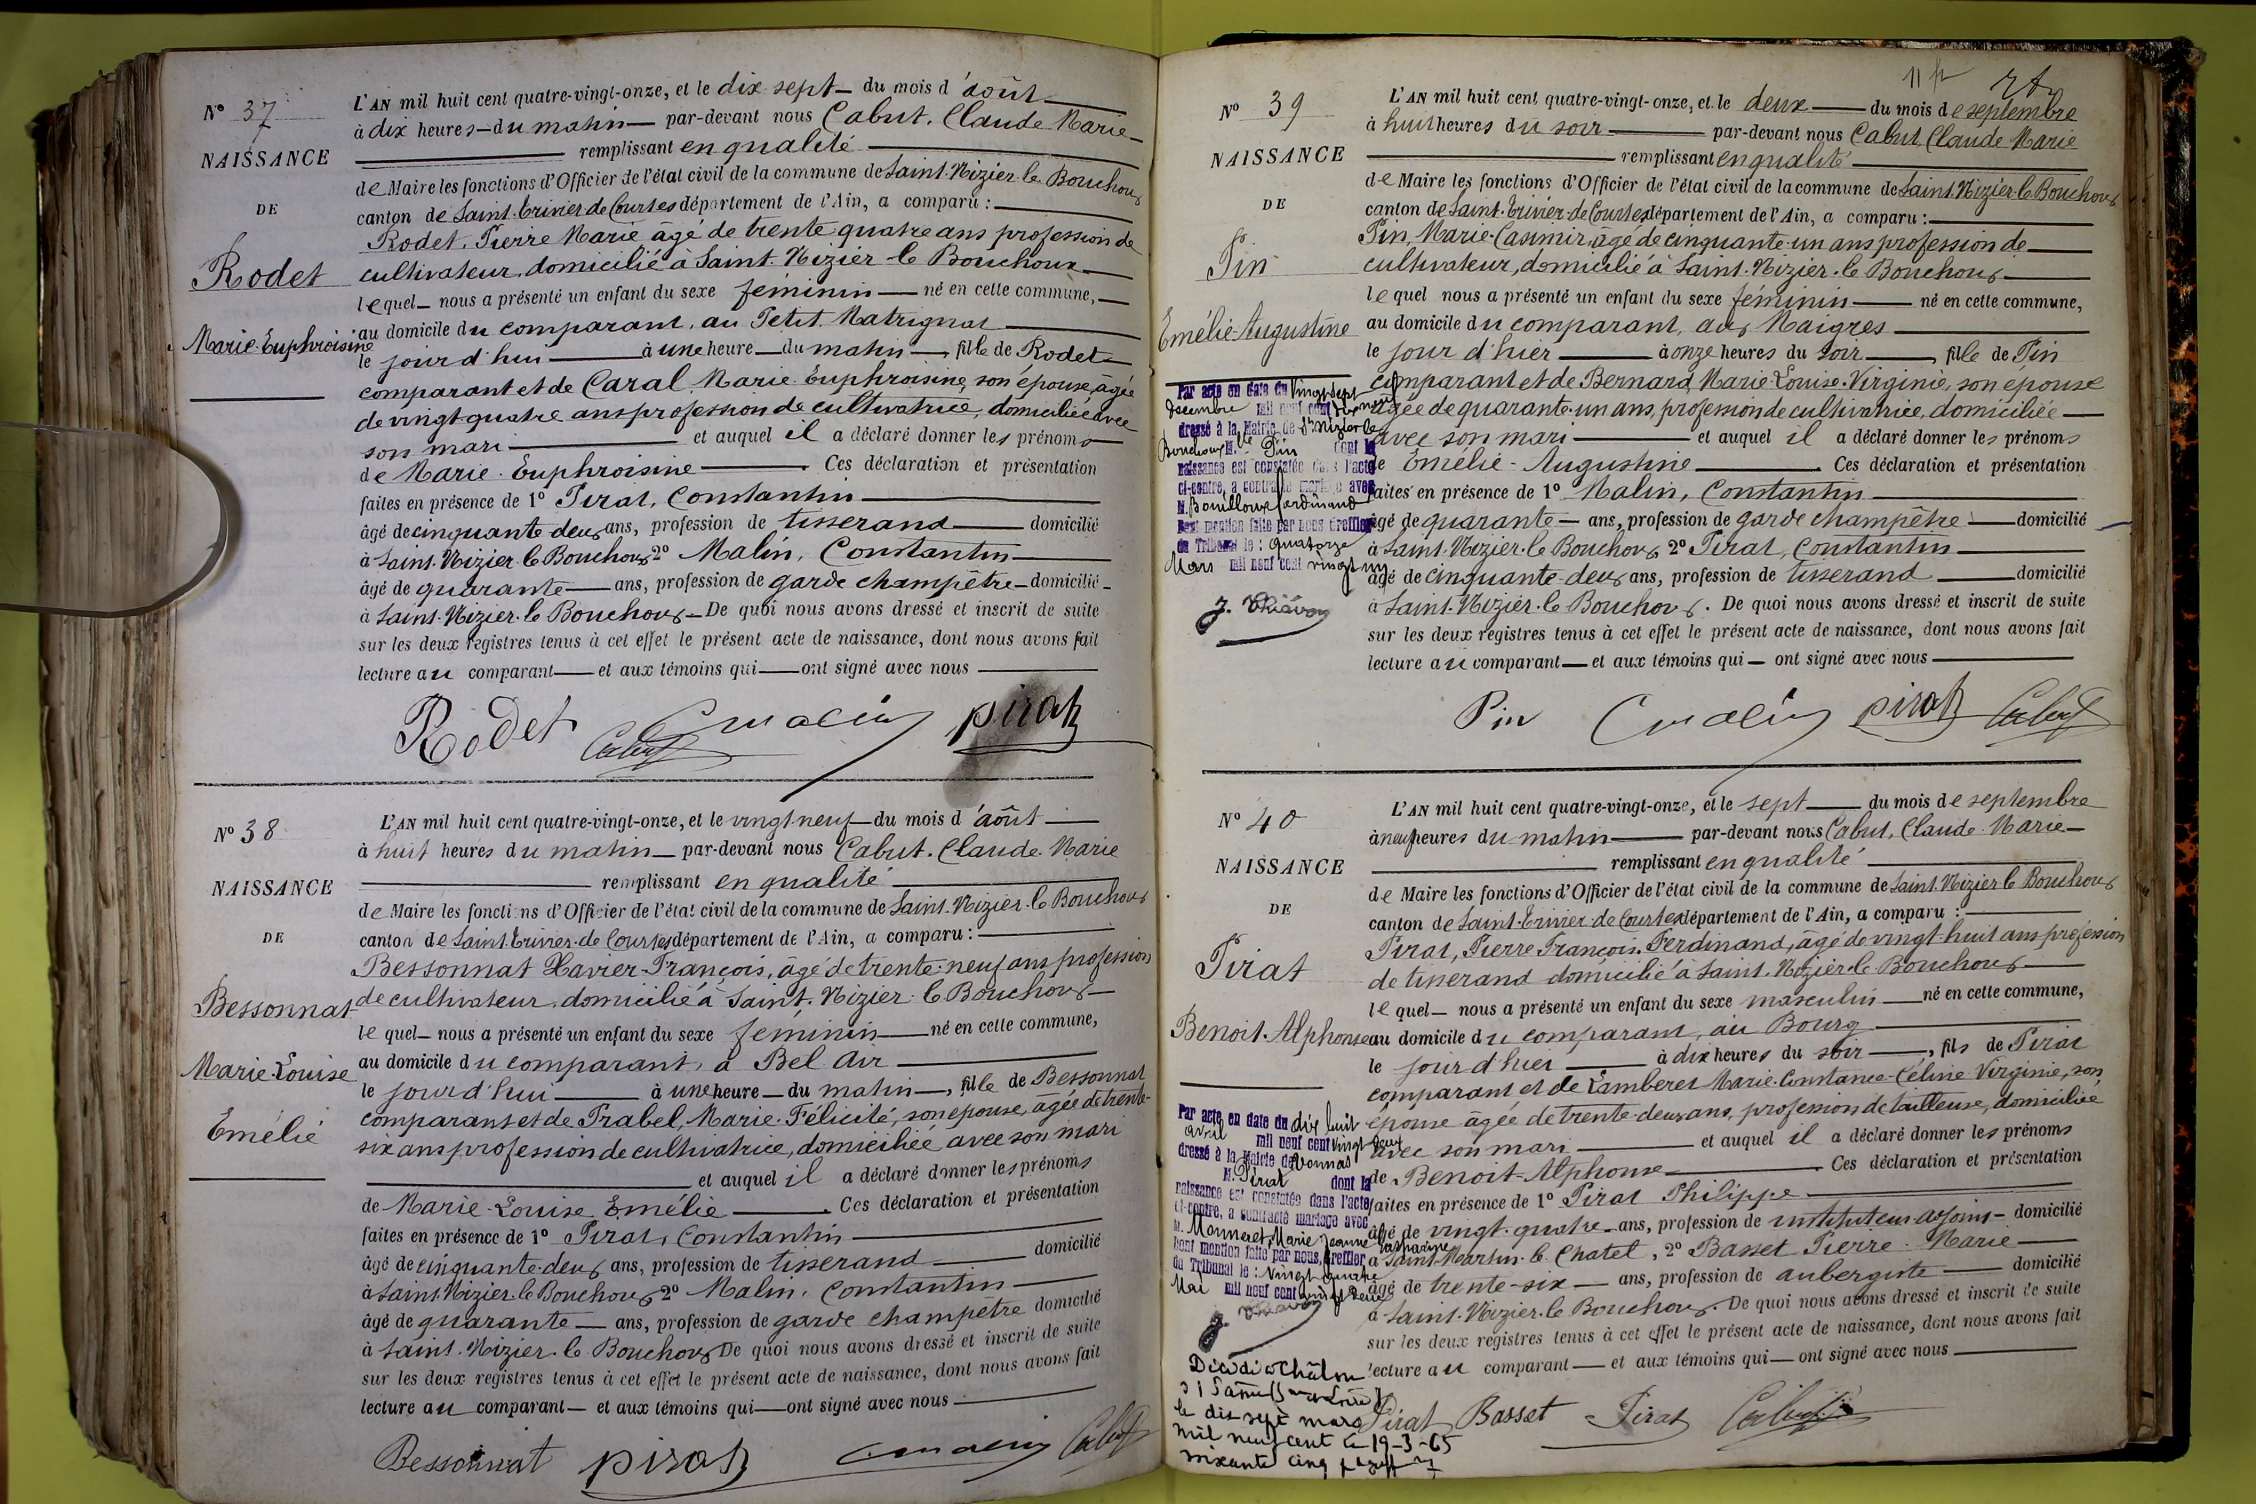 N° 37
NAISSANCE
DE
Rodet
Marie Euphroisine
L'AN mil huit cent quatre-vingt-onze, et le dix sept du mois d'août
à dix heures du matin par-devant nous Cabut, Claude Marie
remplissant en qualité
de Maire les fonctions d'Officier de l'état civil de la commune de Saint-Nizier-le Bouchoux
canton de Saint-Trivier de Courtes département de l'Ain, a comparu :
Rodet, Pierre Marie agé de trente quatre ans profession de
cultivateur, domicilié à Saint-Nizier-le Bouchoux
lequel nous a présenté un enfant du sexe féminin né en cette commune,
au domicile du comparant, au Petit Matrignat
le jour d'hui à une heure du matin, fille de Rodet
comparant et de Caral Marie Euphroisine, son épouse, âgée
de vingt-quatre ans profession de cultivatrice, domiciliée avec
son mari et auquel il a déclaré donner les prénoms
de Marie-Euphroisine. Ces déclaration et présentation
faites en présence de 1° Pirat, Constantin
âgé de cinquante deux ans, profession de tisserand domicilié
à Saint-Nizier-le Bouchoux 2° Malin, Constantin
âgé de quarante ans, profession de garde champêtre domicilié
à Saint-Nizier-le Bouchoux De quoi nous avons dressé et inscrit de suite
sur les deux registres tenus à cet effet le présent acte de naissance, dont nous avons fait
lecture au comparant et aux témoins qui ont signé avec nous
Rodet Cabut C malin pirat
N° 38
NAISSANCE
DE
Bessonnat
Marie Louise
Emélie
L'AN mil huit cent quatre-vingt-onze, et le vingt neuf du mois d'août
à huit heures du matin par-devant nous Cabut, Claude Marie
remplissant en qualité
de Maire les fonctions d'Officier de l'état civil de la commune de Saint-Nizier-le Bouchoux
canton de Saint-Trivier-de Courtes département de l'Ain, a comparu :
Bessonnat Xavier-François, âgé de trente-neuf ans profession
de cultivateur, domicilié à Saint-Nizier-le Bouchoux
lequel nous a présenté un enfant du sexe féminin né en cette commune,
au domicile du comparant, à Bel Air
le jour d'hui à une heure du matin, fille de Bessonnat
comparant et de Prabel, Marie-Félicité, son épouse, âgée de trente-
six ans profession de cultivatrice, domiciliée avec son mari
et auquel il a déclaré donner les prénoms
de Marie-Louise Emélie. Ces déclaration et présentation
faites en présence de 1° Pirat, Constantin
âgé de cinquante-deux ans, profession de tisserand domicilié
à Saint-Nizier-le Bouchoux 2° Malin, Constantin
âgé de quarante ans, profession de garde champêtre domicilié
à Saint-Nizier-le Bouchoux De quoi nous avons dressé et inscrit de suite
sur les deux registres tenus à cet effet le présent acte de naissance, dont nous avons fait
lecture au comparant et aux témoins qui ont signé avec nous
Bessonnat pirat C malin Cabut
N° 39
NAISSANCE
DE
Pin
Emélie-Augustine
L'AN mil huit cent quatre-vingt-onze, et le deux du mois de septembre
à huit heures du soir par-devant nous Cabut, Claude Marie
remplissant en qualité
de Maire les fonctions d'Officier de l'état civil de la commune de Saint-Nizier-le Bouchoux
canton de Saint-Trivier-de Courtes département de l'Ain, a comparu :
Pin, Marie-Casimir, âgé de cinquante-un ans profession de
cultivateur, domicilié à Saint-Nizier-le Bouchoux
lequel nous a présenté un enfant du sexe féminin né en cette commune,
au domicile du comparant, aux Maigres
le jour d'hier à onze heures du soir, fille de Pin
comparant et de Bernard, Marie-Louise-Virginie, son épouse
âgée de quarante-un ans, profession de cultivatrice, domiciliée
avec son mari et auquel il a déclaré donner les prénoms
de Emélie-Augustine Ces déclaration et présentation
faites en présence de 1° Malin, Constantin
âgé de quarante ans, profession de garde champêtre domicilié
à Saint-Nizier-le Bouchoux 2° Pirat, Constantin
âgé de cinquante-deux ans, profession de tisserand domicilié
à Saint-Nizier-le Bouchoux. De quoi nous avons dressé et inscrit de suite
sur les deux registres tenus à cet effet le présent acte de naissance, dont nous avons fait
lecture au comparant et aux témoins qui ont signé avec nous
Par acte en date du Vingt sept
décembre mil neuf cent dix neuf
dressé à la Mairie de St Nizier le
Bouchoux Mlle Pin dont la
naissance est constatée dans l'acte
ci-contre, a contracté mariage avec
M. Bouilloux Ferdinand
Dont mention faite par nous Greffier
du Tribunal le : quatorze
Mars mil neuf cent vingt un
Pin C malin pirat Cabut
N° 40
NAISSANCE
DE
Pirat
Benoit-Alphonse
L'AN mil huit cent quatre-vingt-onze, et le sept du mois de septembre
à neuf heures du matin par-devant nous Cabut, Claude-Marie
remplissant en qualité
de Maire les fonctions d'Officier de l'état civil de la commune de Saint-Nizier le Bouchoux
canton de Saint-Trivier-de Courtes département de l'Ain, a comparu :
Pirat, Pierre François-Ferdinand, âgé de vingt-huit ans profession
de tisserand domicilié à Saint-Nizier-le Bouchoux
lequel nous a présenté un enfant du sexe masculin né en cette commune,
au domicile du comparant, au Bourg
le jour d'hier à dix heures du soir, fils de Pirat
comparant et de Lamberet Marie-Constance-Céline Virginie, son
épouse âgée de trente-deux ans, profession de tailleuse, domiciliée
avec son mari et auquel il a déclaré donner les prénoms
de Benoit-Alphonse Ces déclaration et présentation
faites en présence de 1° Pirat Philippe
âgé de vingt-quatre ans, profession de instituteur-adjoint domicilié
à Saint-Martin-le Chatel, 2° Basset Pierre-Marie
âgé de trente-six ans, profession de aubergiste domicilié
à Saint-Nizier-le Bouchoux. De quoi nous avons dressé et inscrit de suite
sur les deux registres tenus à cet effet le présent acte de naissance, dont nous avons fait
lecture au comparant et aux témoins qui ont signé avec nous
Par acte en date du dix huit
avril mil neuf cent vingt deux
dressé à la Mairie de Vonnas
M. Pirat dont la
naissance est constatée dans l'acte
ci-contre, a contracté mariage avec
M. Monneret Marie Jeanne
Gasparine
Dont mention faite par nous, Greffier
du Tribunal le : Vingt quatre
Mai mil neuf cent vingt deux
Décédé à Châlon
s/ Saône (S. et Loire)
le dix sept mars
mil neuf cent le 19-3-65
soixante cinq
Pirat Basset Pirat Cabut